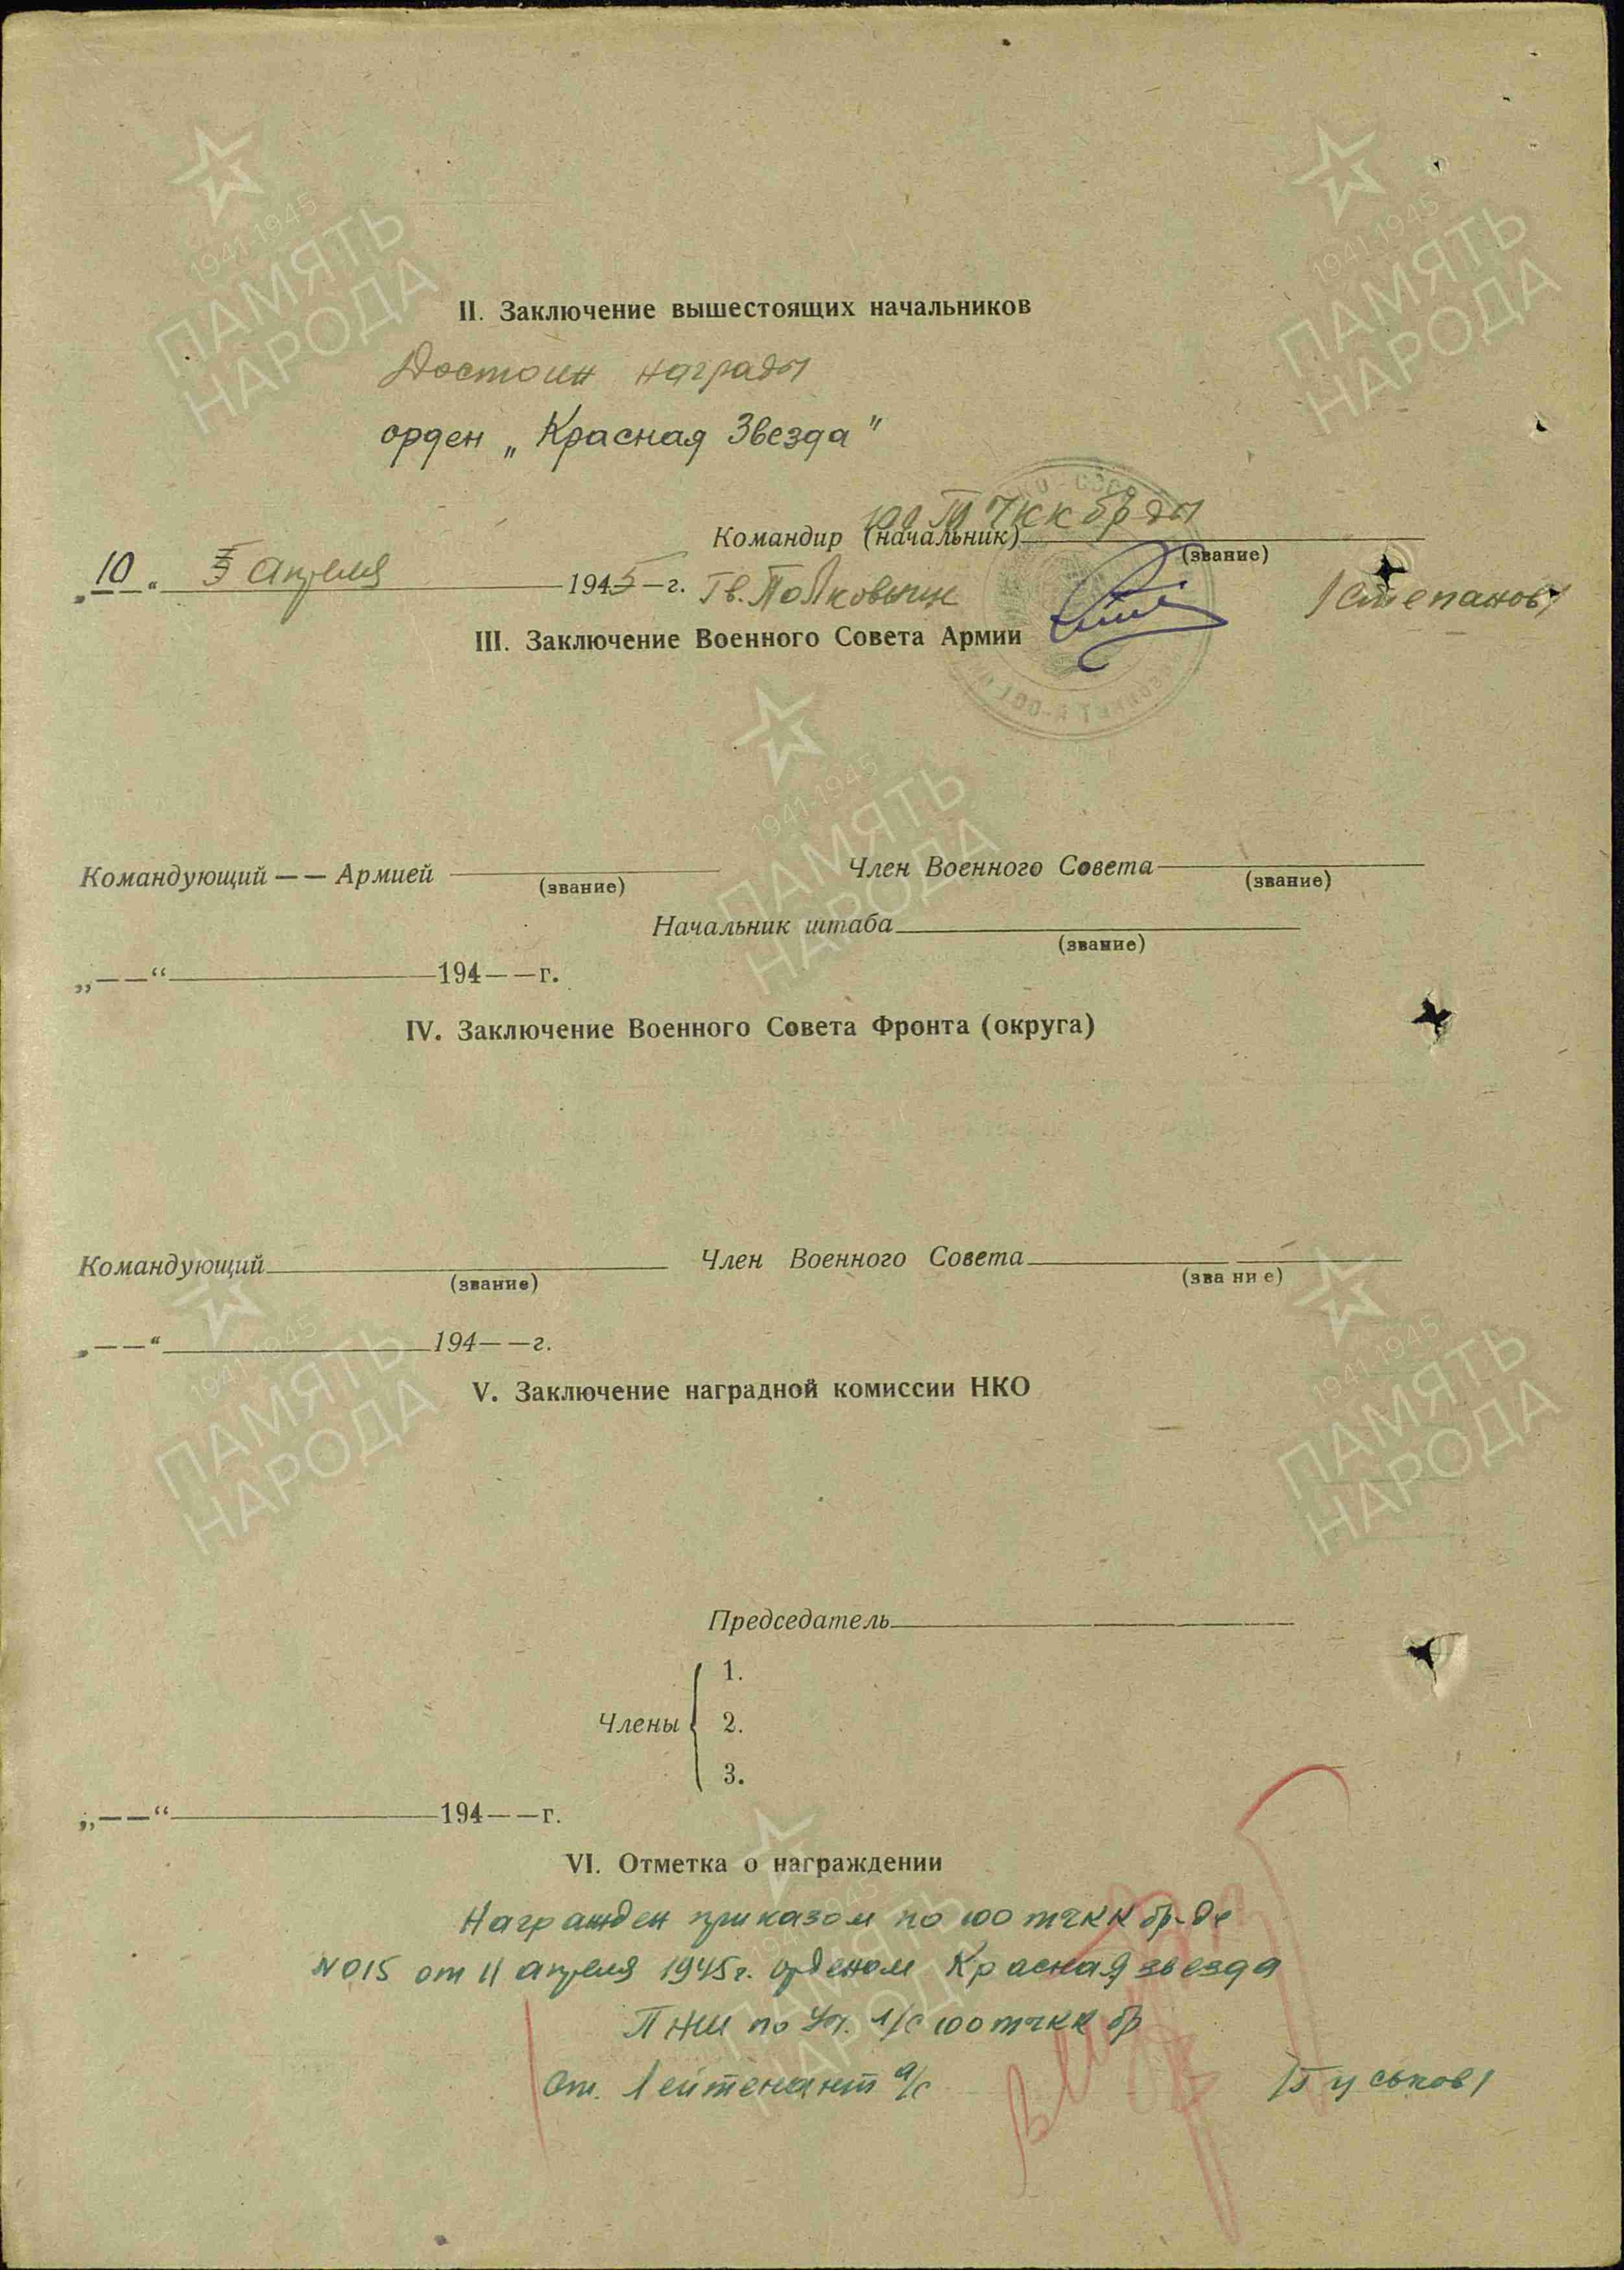 II. Заключение вышестоящих начальников
Достоин награды
орден „Красная Звезда"
100 ТЧКК бр-ды
Командир (начальник)
(звание)
„10“ апреля 1945 г. Гв. Полковник /Степанов/
III. Заключение Военного Совета Армии
Командующий — — Армией
(звание)
Член Военного Совета
(звание)
Начальник штаба
(звание)
„— —“ 194— —г.
IV. Заключение Военного Совета Фронта (округа)
Командующий
(звание)
Член Военного Совета
(звание)
„— —“ 194— —г.
V. Заключение наградной комиссии НКО
Председатель
Члены
1.
2.
3.
„— —“ 194— —г.
VI. Отметка о награждении
Награжден приказом по 100 тчкк бр-де
N 015 от 11 апреля 1945г. орденом Красная звезда
ПНШ по уч. л/с 100 тчкк бр
Ст. Лейтенант а/с /Гуськов/
1941-1945
ПАМЯТЬ
НАРОДА
1941-1945
ПАМЯТЬ
НАРОДА
1941-1945
ПАМЯТЬ
НАРОДА
1941-1945
ПАМЯТЬ
НАРОДА
1941-1945
ПАМЯТЬ
НАРОДА
1941-1945
ПАМЯТЬ
НАРОДА